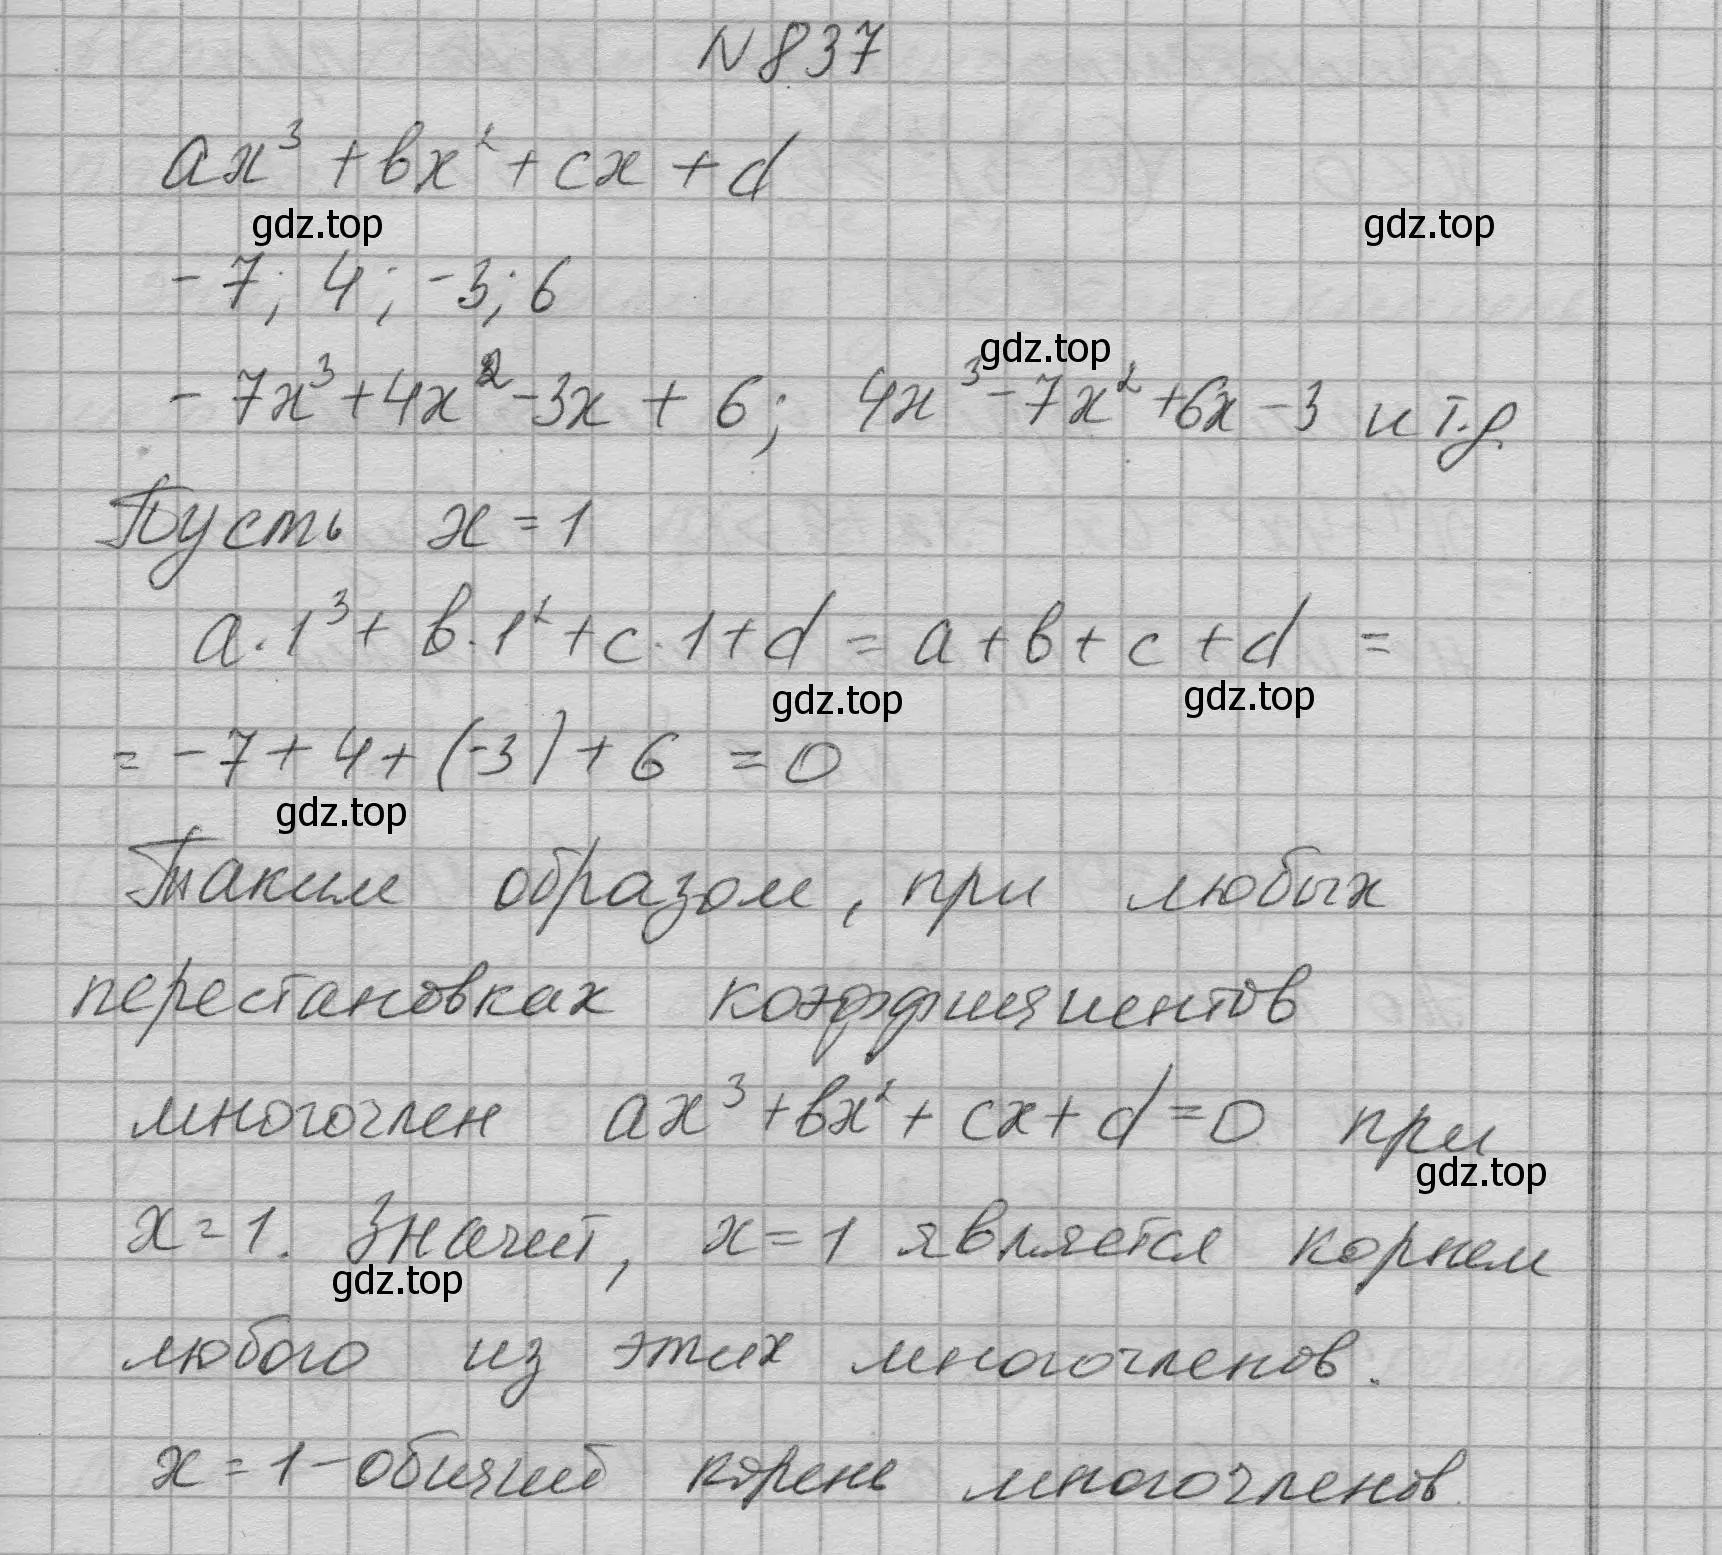 N 837
ax³ + bx² + cx + d
gdz.top gdz.top
- 7; 4; -3; 6
gdz.top
- 7x³ + 4x² - 3x + 6; 4x³ - 7x² + 6x - 3 и т.д.
Пусть x = 1
a·1³ + b·1² + c·1 + d = a + b + c + d =
gdz.top gdz.top
= - 7 + 4 + (-3) + 6 = 0
gdz.top
Таким образом, при любых
перестановках коэффициентов
многочлен ax³ + bx² + cx + d = 0 при
gdz.top
x = 1. Значит, x = 1 является корнем
gdz.top
любого из этих многочленов.
x = 1 - общий корень многочленов.